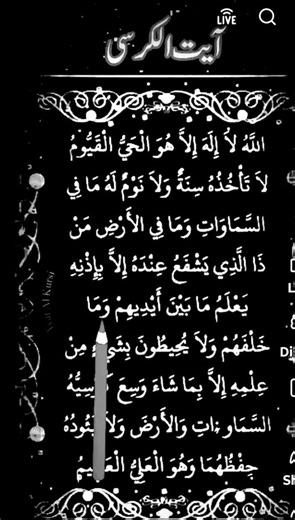 LIVE
آیت الکرسی
اللَّهُ لاَ إِلَهَ إِلاَّ هُوَ الْحَيُّ الْقَيُّومُ
لاَ تَأْخُذُهُ سِنَةٌ وَلاَ نَوْمٌ لَهُ مَا فِي
السَّمَاوَاتِ وَمَا فِي الأَرْضِ مَنْ
ذَا الَّذِي يَشْفَعُ عِنْدَهُ إِلاَّ بِإِذْنِهِ
يَعْلَمُ مَا بَيْنَ أَيْدِيهِمْ وَمَا
خَلْفَهُمْ وَلاَ يُحِيطُونَ مِنْ
عِلْمِهِ إِلاَّ بِمَا شَاءَ وَسِعَ
وَالأَرْضَ
حِفْظُهُمَا وَهُوَ الْعَلِيُّ
Ayat Al Kursi